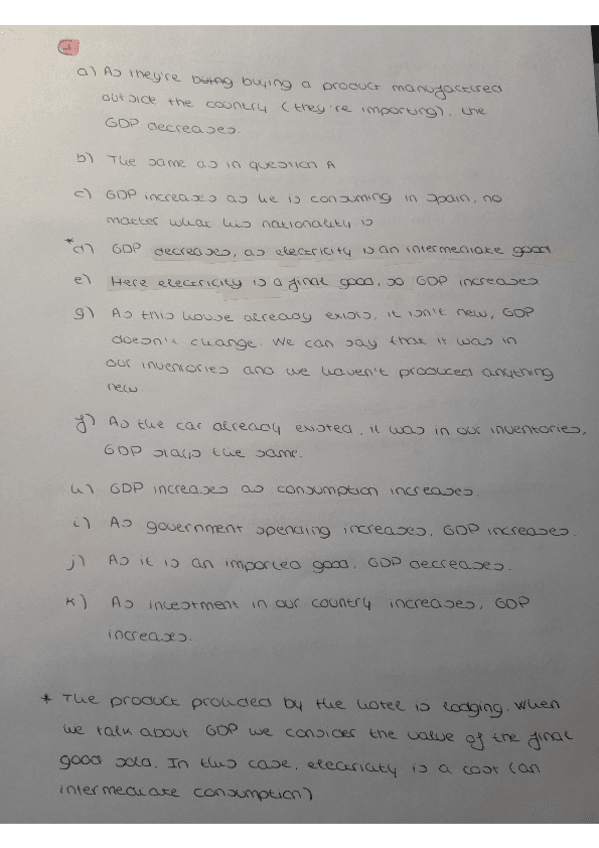 1
a) As they're buing buying a product manufactured
outside the country (they're importing), the
GDP decreases.
b) The same as in question A
c) GDP increases as he is consuming in Spain, no
matter what his nationality is
*d) GDP decreases, as electricity is an intermediate good
e) Here electricity is a final good, so GDP increases
g) As this house already exists, it isn't new, GDP
doesn't change. We can say that it was in
our inventories and we haven't produced anything
new
f) As the car already existed, it was in our inventories,
GDP stays the same.
h) GDP increases as consumption increases.
i) As government spending increases, GDP increases.
j) As it is an imported good, GDP decreases.
k) As investment in our country increases, GDP
increases.
* The product provided by the hotel is lodging. When
we talk about GDP we consider the value of the final
good sold. In this case, electricity is a cost (an
intermediate consumption)